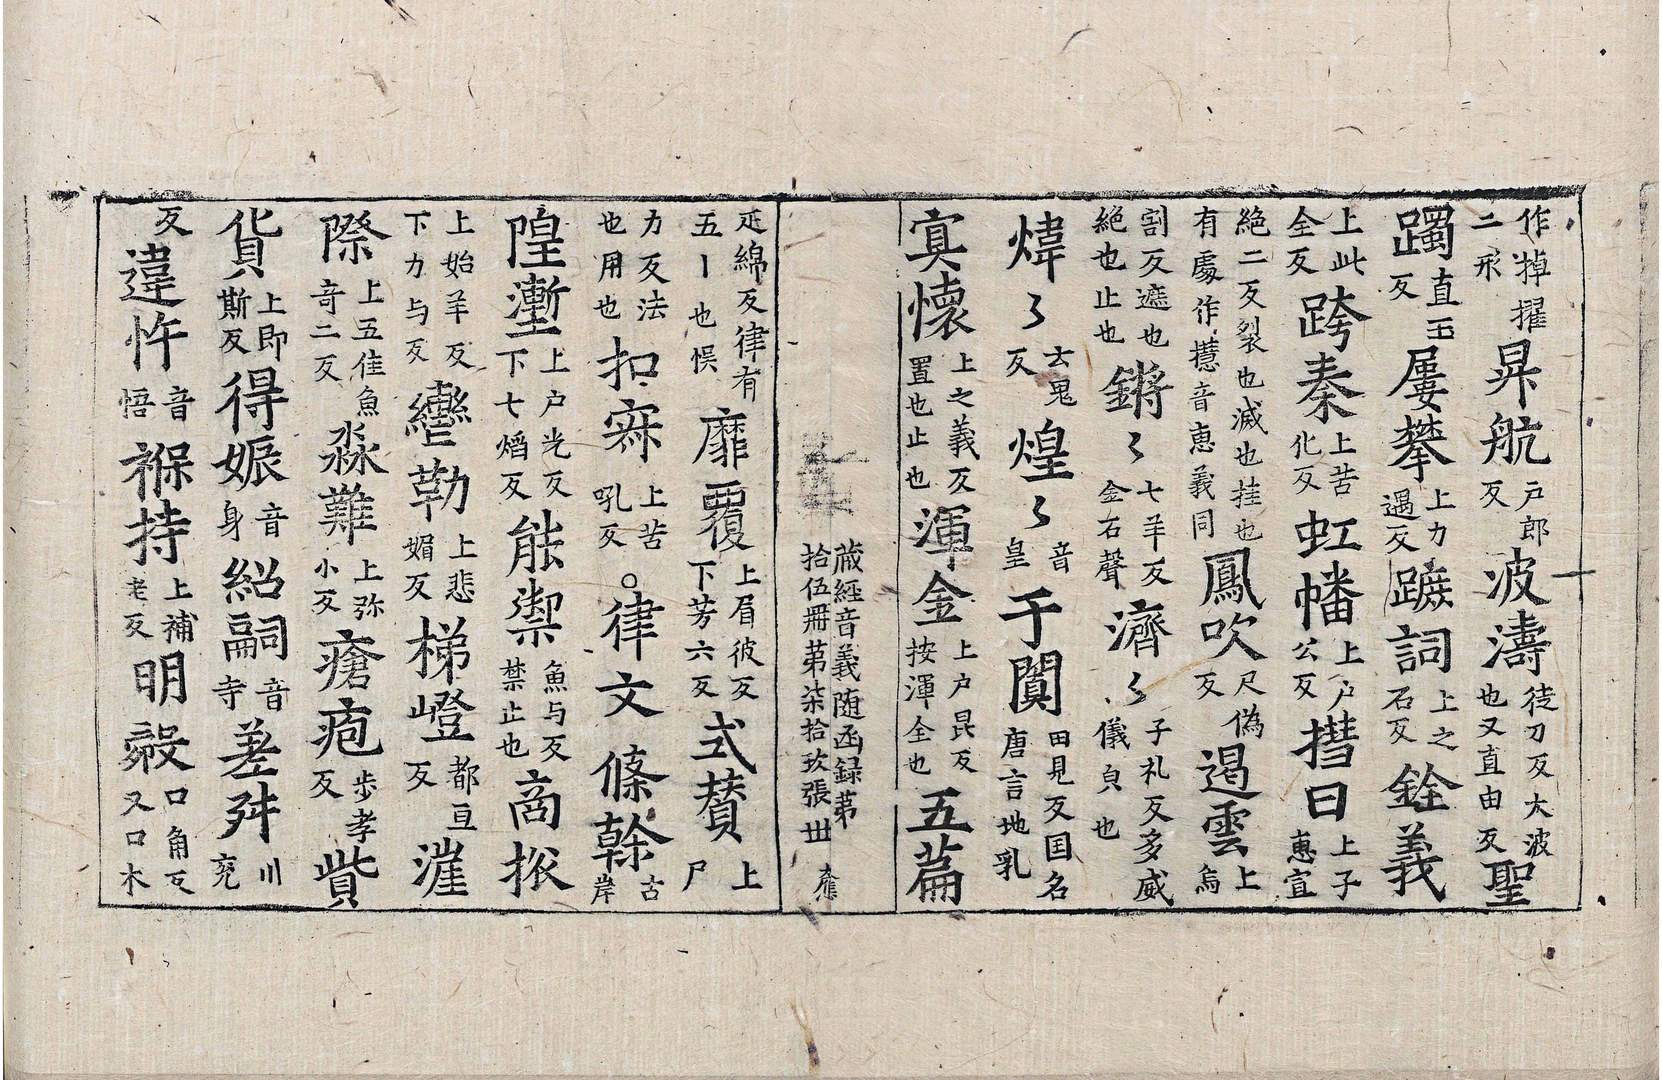 作掉擢二形昇航戸郎反波濤徒刀反大波也又直由反聖
躅直玉反屢攀上力遇反蹠詞上之石反銓義
上此全反跨秦上苦化反虹幡上户公反撍曰上子惠宜
絶二反裂也滅也挂也有處作懳音惠義同鳳吹尺偽反遏雲上烏
割反遮也絶也止也鏘〻七羊反金石聲濟〻子礼反多威儀皃也
煒〻云鬼反煌〻音皇于闐田見反国名唐言地乳
寘懷上之義反置也止也渾金上户昆反按渾全也五篇
藏經音義随函録第
拾伍冊第柒拾玖張丗
延綿反律有五丨也悮靡覆上眉彼反下芳六反式賛上尸
力反法也用也扣寐上苦吼反○律文條榦古岸
隍壍上户光反下七熖反能禦魚与反禁止也商挀
上始羊反下力与反轡勒上悲媚反梯嶝都亘反漄
際上五佳魚奇二反淼難上弥小反瘡疱步孝反貲
貨上即斯反得娠音身紹嗣音寺差舛川兖
反違忤音悟褓持上補老反明㲉口角反又口木